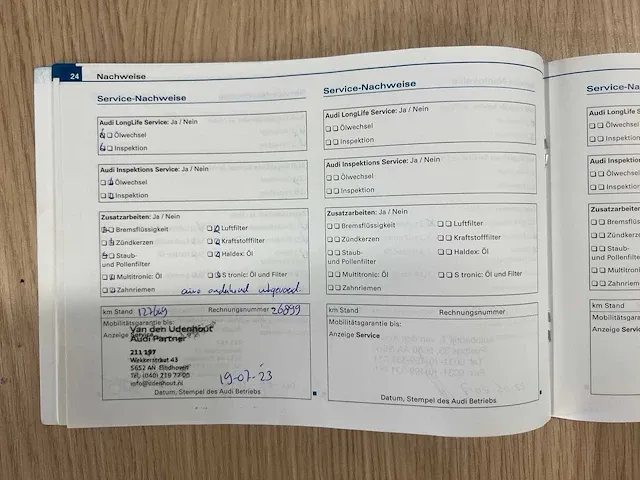 24 Nachweise
Service-Nachweise
Audi LongLife Service: Ja / Nein
Ölwechsel
Inspektion
Audi Inspektions Service: Ja / Nein
Ölwechsel
Inspektion
Zusatzarbeiten: Ja / Nein
Bremsflüssigkeit Luftfilter
Zündkerzen Kraftstofffilter
Staub- Haldex: Öl
und Pollenfilter
Multitronic: Öl S tronic: Öl und Filter
Zahnriemen
airco onderhoud uitgevoerd.
km Stand Rechnungsnummer 26899
Mobilitätsgarantie bis:
Anzeige Service
Van den Udenhout
Audi Partner
211 197
Wekkerstraat 43
5652 AN Eindhoven
Tel: (040) 219 77 00
info@udenhout.nl
19-07-'23
Datum, Stempel des Audi Betriebs
Service-Nachweise
Audi LongLife Service: Ja / Nein
Ölwechsel
Inspektion
Audi Inspektions Service: Ja / Nein
Ölwechsel
Inspektion
Zusatzarbeiten: Ja / Nein
Bremsflüssigkeit Luftfilter
Zündkerzen Kraftstofffilter
Staub- Haldex: Öl
und Pollenfilter
Multitronic: Öl S tronic: Öl und Filter
Zahnriemen
km Stand Rechnungsnummer
Mobilitätsgarantie bis:
Anzeige Service
Datum, Stempel des Audi Betriebs
Service-Na
Audi LongLife
Ölwechsel
Inspektion
Audi Inspektion
Ölwechsel
Inspektion
Zusatzarbeiten:
Bremsflüss
Zündkerzen
Staub-
und Pollenfilter
Multitronic
Zahnriemen
km Stand
Mobilitätsgaran
Anzeige Servic